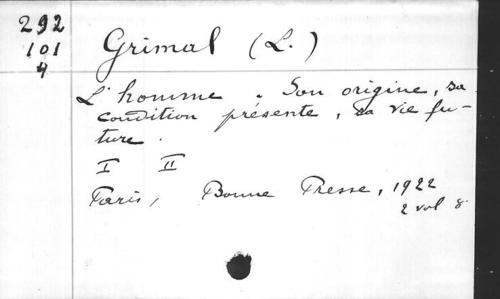 292
101
4
Grimal (L.)
L'homme. Son origine, sa
condition présente, sa vie fu-
ture.
I II
Paris, Bonne Presse, 1922
2 vol 8°